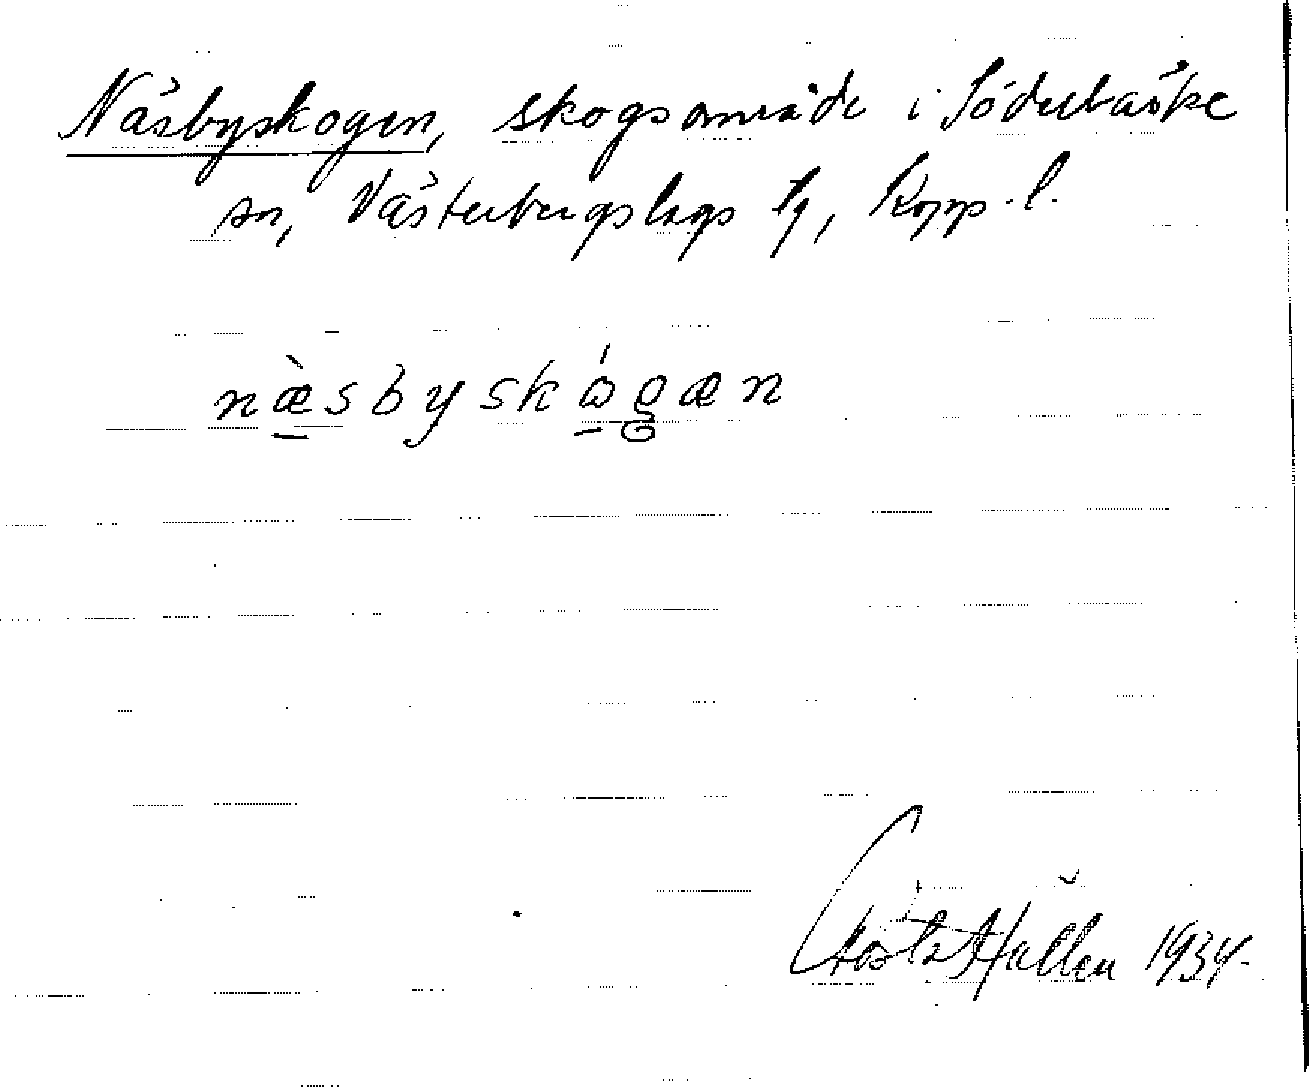 Näsbyskogen, skogsområde i Söderbärke
sn, Västerbergslags tg, Kopp. l.
næ̀sbyskώgæn
Gösta Hallén 1934.